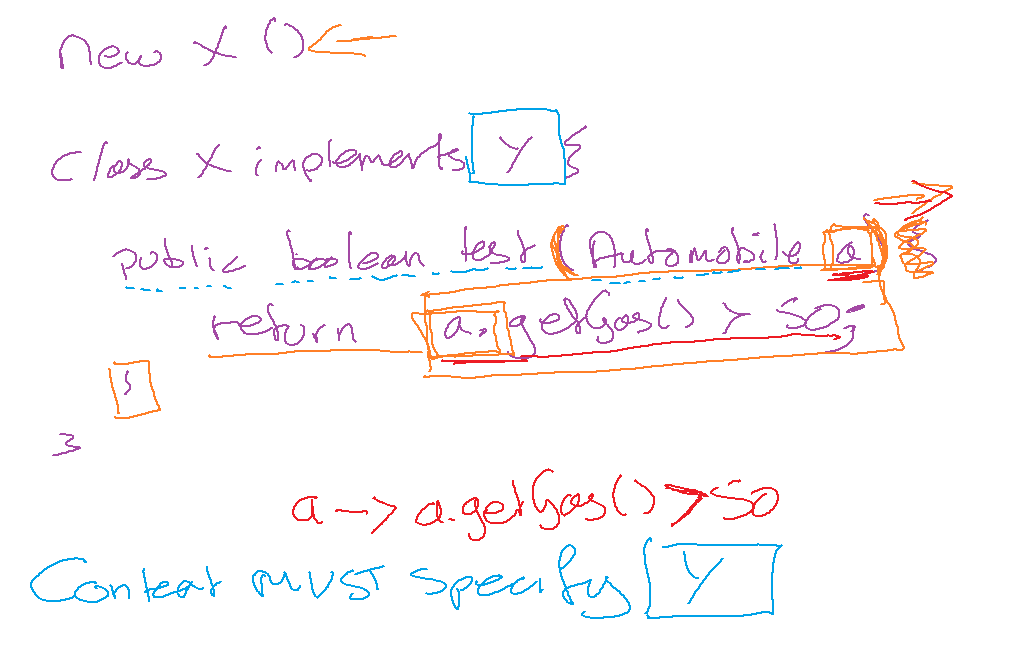 new X ()
Class X implements Y {
public boolean test (Automobile a) {
return a.getGas() > 50;
}
}
a -> a.getGas() > 50
Context MUST specify Y